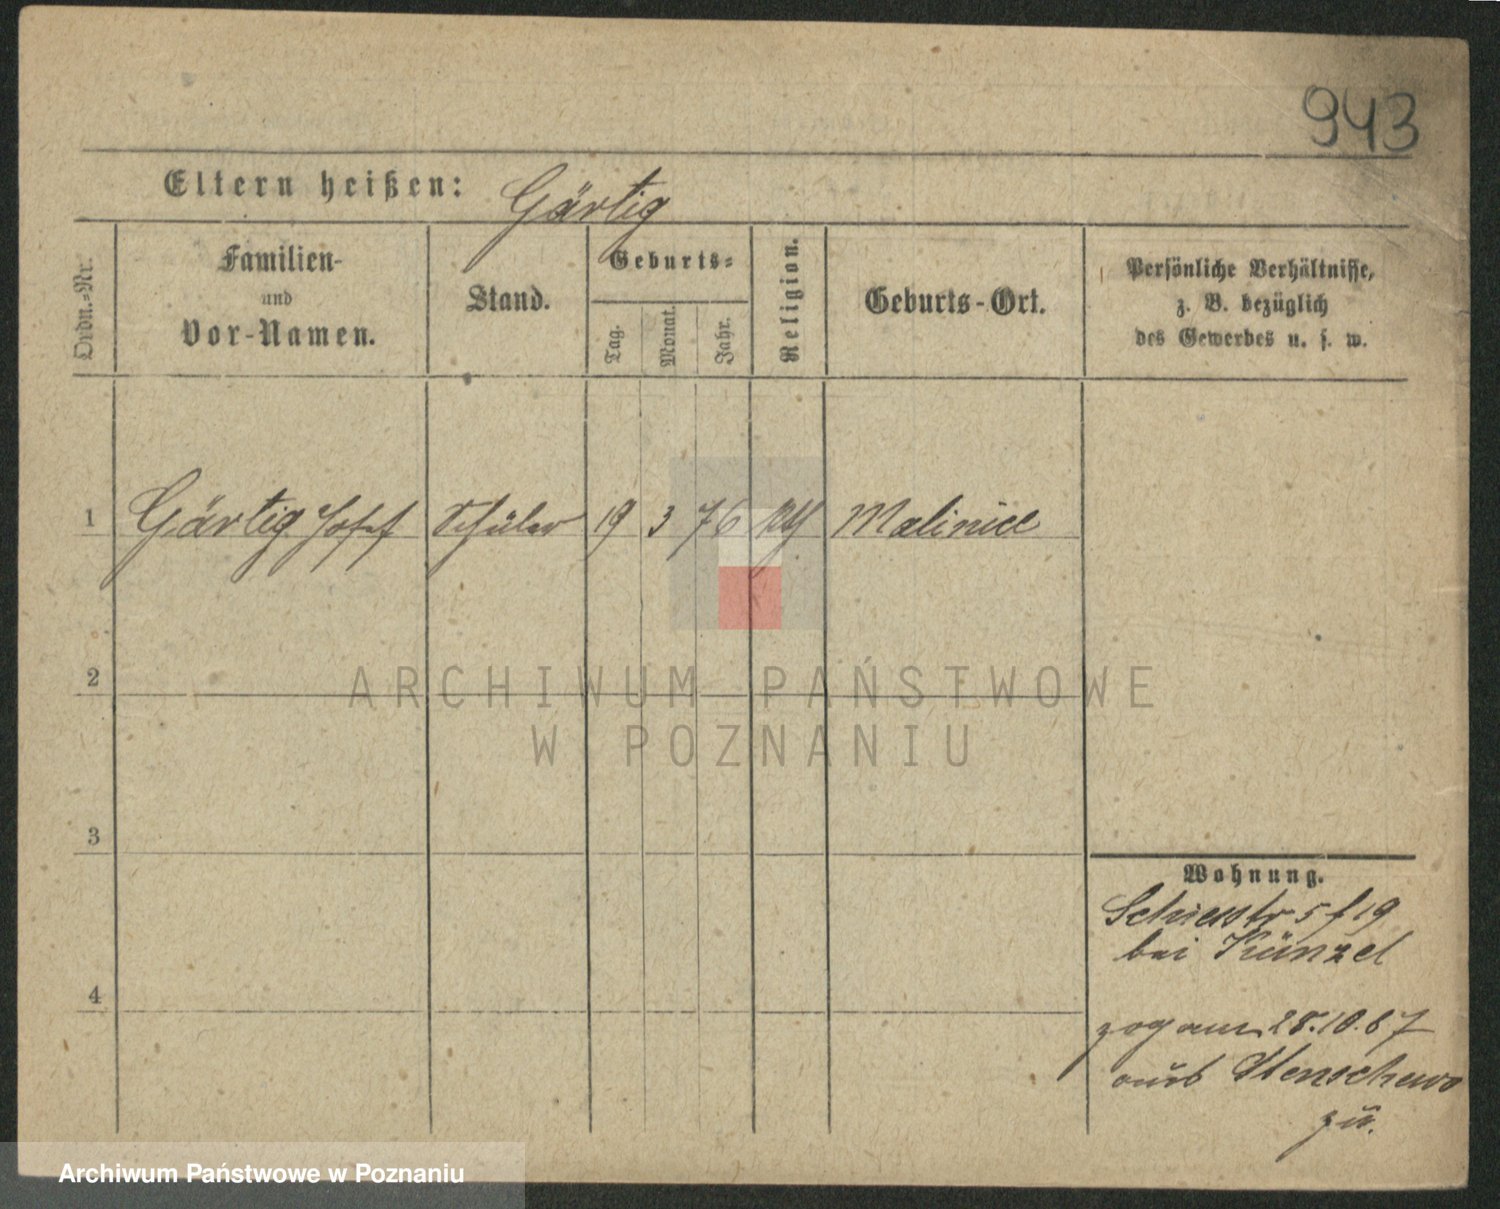 943
Eltern heißen: Gärtig
Ordn.-Nr.
Familien-
und
Vor-Namen.
Stand.
Geburts-
Tag.
Monat.
Jahr.
Religion.
Geburts-Ort.
Persönliche Verhältnisse,
z. B. bezüglich
des Gewerbes u. s. w.
1 Gärtig Josef Schüler 19 3 76 Malinice
2
3
4
Wohnung.
5 f 19
bei Künzel
zog am 28.10.87
aus Stenschewo
zu.
ARCHIWUM PAŃSTWOWE
W POZNANIU
Archiwum Państwowe w Poznaniu